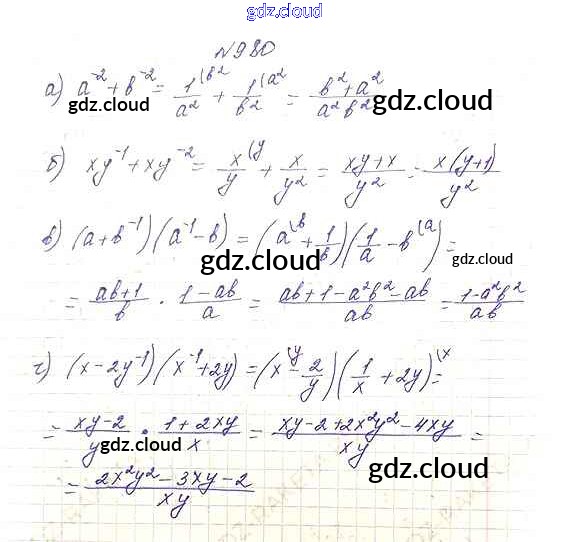 gdz.cloud
№980
а) a⁻² + b⁻² = 1(b² / a² + 1(a² / b² = b² + a² / a²b²
gdz.cloud gdz.cloud
б) xy⁻¹ + xy⁻² = x(y / y + x / y² = xy + x / y² = x(y+1) / y²
в) (a + b⁻¹)(a⁻¹ - b) = (a(b + 1/b)(1/a - b(a) =
gdz.cloud gdz.cloud
= ab+1 / b · 1-ab / a = ab + 1 - a²b² - ab / ab = 1-a²b² / ab
г) (x - 2y⁻¹)(x⁻¹ + 2y) = (x(y - 2/y)(1/x + 2y)(x =
= xy-2 / y · 1+2xy / x = xy - 2 + 2x²y² - 4xy / xy =
gdz.cloud gdz.cloud
= 2x²y² - 3xy - 2 / xy
gdz.cloud